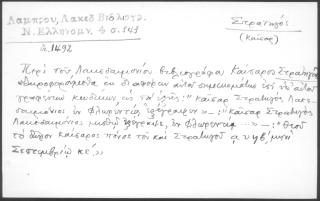 Λαμπρου, Λακεδ. Βιβλιογρ.
Ν. Ελληνομν. 4 σ. 141
Στρατηγός
(Καίσαρ)
α. 1492
Περὶ τοῦ Λακεδαιμονίου βιβλιογράφου Καίσαρος Στρατηγοῦ
ἐκ διαφόρων αὐτοῦ σημειωμάτων ἐπὶ τῶν
κωδίκων ὡς τὰ ἑξῆς: "Καῖσαρ Στρατηγὸς Λακε-
δαιμόνιος ἐν Φλωρεντίᾳ ἐξέγραψεν» — : "Καῖσαρ Στρατηγὸς
Λακεδαιμόνιος μισθῷ ἐξέγραψε, ἐν Φλωρεντίᾳ — : "Θεοῦ
τὸ δῶρον Καίσαρος πόνος τοῦ καὶ Στρατηγοῦ α υ ϟ β′ μηνὶ
Σεπτεμβρίῳ κε′»